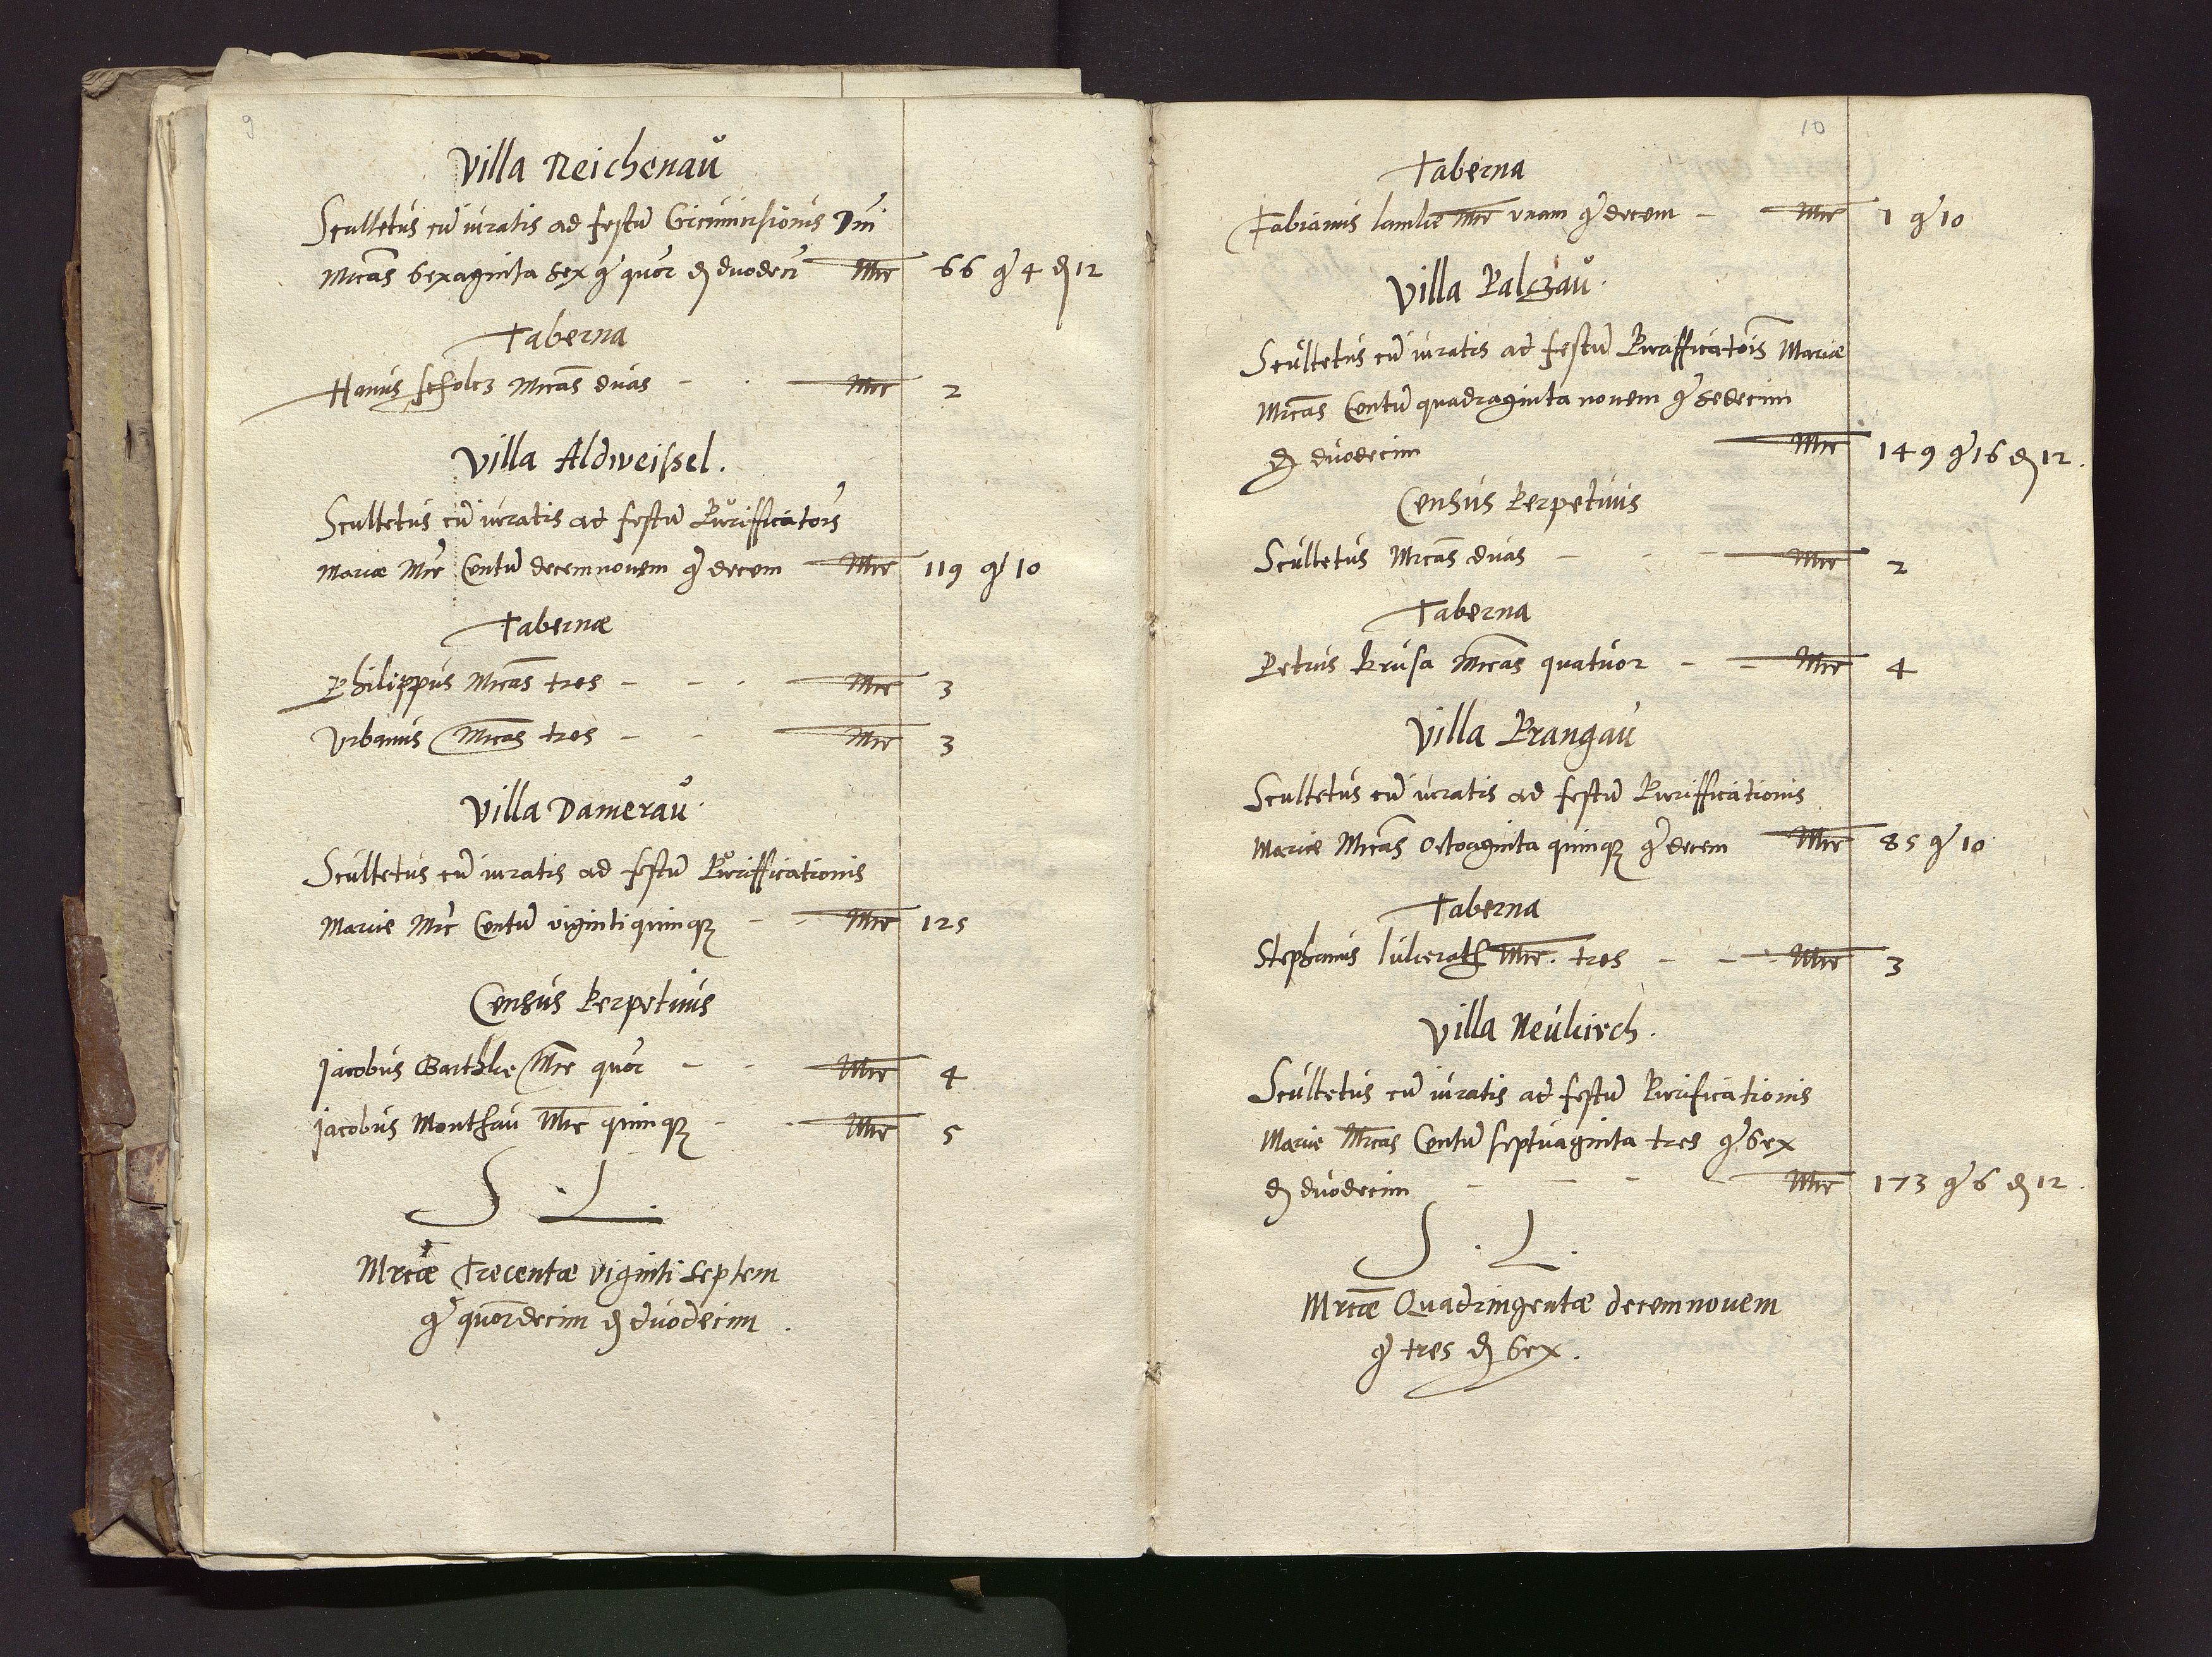 9
Villa Reichenaů
Scultetus cũ iuratis ad festũ Circumcisionis Dnĩ
Mrcãs Sexaginta sex gͬ quõr ₰ duodecĩ Mrc 66 gͬ 4 ₰ 12
Taberna
Hanus scholcz Mrcãs duas - . Mrc 2
Villa Aldweissel.
Scultetus cũ iuratis ad festũ Purifficatõis
Mariæ Mrc̃ Centũ decemnonem gͬ decem Mrc 119 gͬ 10
Tabernæ
Philippus Mrcãs tres - - . Mrc 3
Urbanus Mrcãs tres - - Mrc 3
Villa Dameraů.
Scultetus cũ iuratis ad festũ Purifficationis
Mariæ Mrc̃ Centũ vigintiquinqꝫ - Mrc 125
Census Perpetuus
Jacobus Barthke Mrc̃ quõr - - Mrc 4
Jacobus Monthau Mrc̃ quinqꝫ - - Mrc 5
S . L.
Mrcæ Trecentæ viginti septem
gͬ quõrdecim ₰ duodecim .
10
Taberna
Fabianus lamke Mrc̃ unam gͬ decem - Mrc 1 gͬ 10
Villa Palczaů.
Scultetus cũ iuratis ad festũ Purifficatõis Mariæ
Mrcãs Centũ quadraginta nonem gͬ sedecim
₰ duodecim Mrc 149 gͬ 16 ₰ 12.
Census Perpetuus
Scultetus Mrcãs duas - - - Mrc 2
Taberna
Petrus Krusa Mrcãs quatuor - - Mrc 4
Villa Prangaů
Scultetus cũ iuratis ad festũ Purifficationis
Mariæ Mrcãs Octoaginta quinqꝫ gͬ decem Mrc 85 gͬ 10
Taberna
Stephanus lukerath Mrc̃. tres - - Mrc 3
Villa Neukirch.
Scultetus cũ iuratis ad festũ Purificationis
Mariæ Mrcãs Centũ septuaginta tres gͬ Sex
₰ duodecim - - - Mrc 173 gͬ 6 ₰ 12.
S . L.
Mrcæ̃ Quadringentæ decemnouem
gͬ tres ₰ Sex.